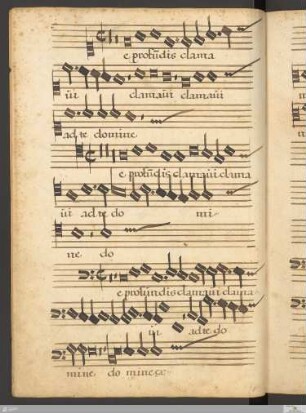 e profūdis clama
ui clamaui clamaui
ad te domine
e profūdis clamaui clama
ui ad te do mi-
ne do
e profundis clamaui clama-
ui ad te do
mine do mine